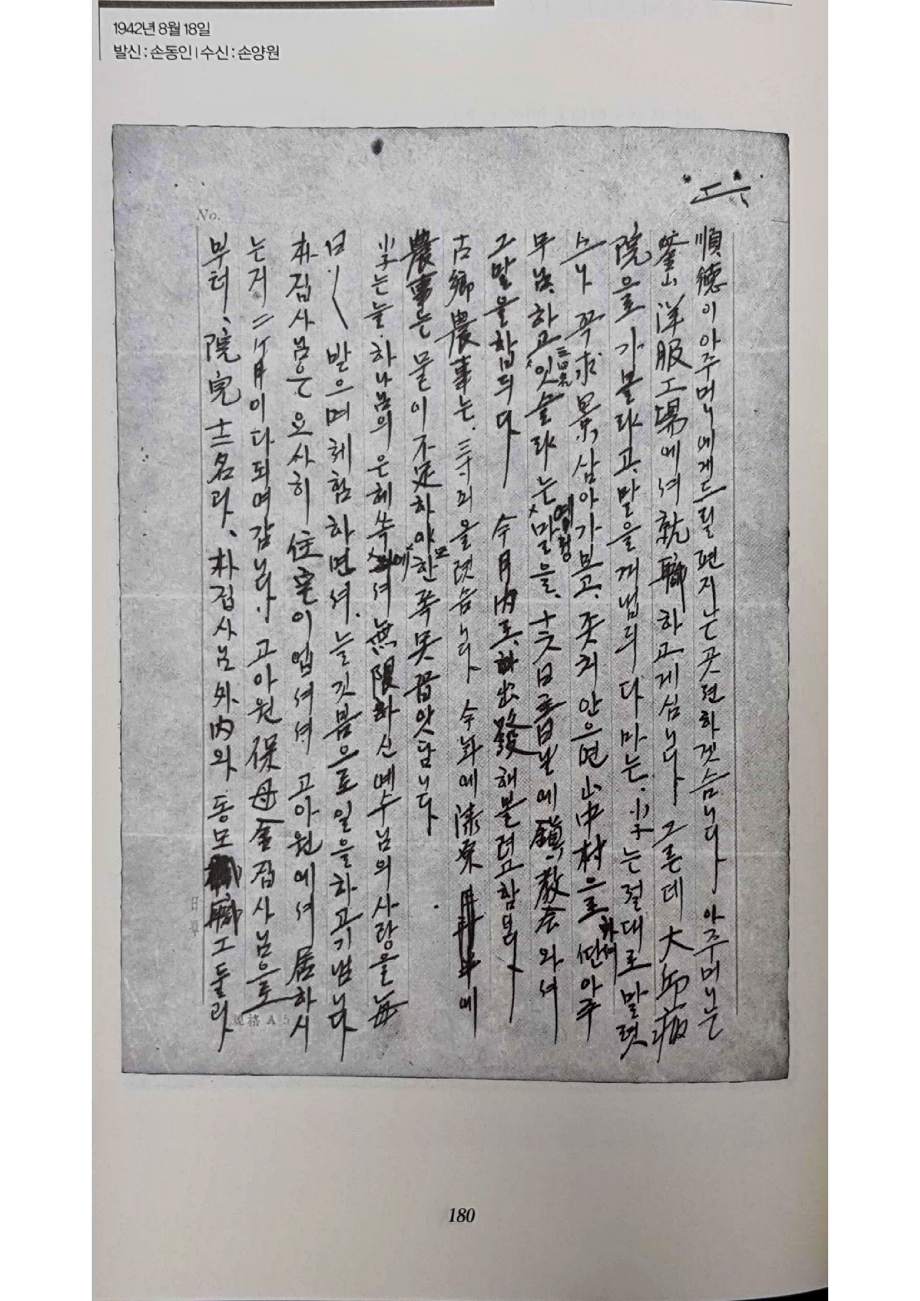 1942년 8월 18일
발신 : 손동인 | 수신 : 손양원
No.
順德이 아주머니에게 드릴 편지는 곳 편하겟슴니다. 아주머니는
釜山 洋服工場에셔 就職하고 게심니다. 그른데 大邱病
院으로 가볼라고 말을 게냅듸다마는, 小子는 절대로 말렷
스나 꼭 求景삼아 가보고, 좃치 안으면 山中村으로 아주
무남하고 잇슬라는 말을, 十六日 主日날에 敎会 와셔
그 말을 합듸다. 今月內로 出發해볼려고 함듸다.
古鄕 農事는, 하야 에
農事는 물이 不足하야 한 쪽 못 꼽앗답니다
小子는 늘 하나님의 은혜 속에셔 無限하신 예수님의 사랑을 每
日 〱 받으며 체험하면셔, 늘 깃븜으로 일을 하고 기냅니다
朴집사님은 요사히 住宅이 업셔셔 고아원에셔 居하시
는 거 二ケ月이 다 되며 갑니다. 고아원 保母 金집사님으로
부터, 院児 十二名과, 朴집사님 外內와 동모 職工들과
規格 A5
180